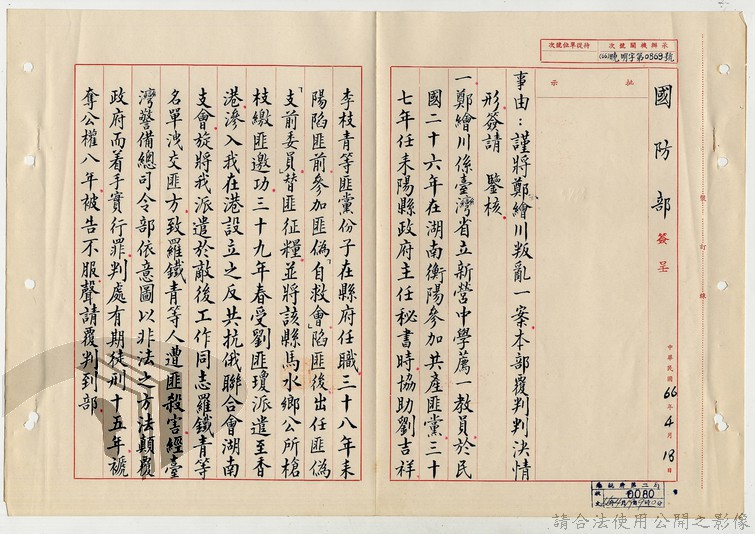 承辦機關號次
待從單位號次
(66)曉明字第0869號
批示
國防部簽呈
中華民國66年4月18日
裝訂線
事由：謹將鄭繪川叛亂一案本部覆判判決情
形簽請　鑒核
一鄭繪川係臺灣省立新營中學薦一教員於民
國二十六年在湖南衡陽參加共產匪黨三十
七年任耒陽縣政府主任秘書時協助劉吉祥
李枝青等匪黨份子在縣府任職三十八年耒
陽陷匪前參加匪偽「自救會」陷匪後出任匪偽
「支前委員」替匪征糧並將該縣馬水鄉公所槍
枝繳匪邀功三十九年春受劉匪瓊派遣至香
港滲入我在港設立之反共抗俄聯合會湖南
支會旋將我派遣於敵後工作同志羅鐵青等
名單洩交匪方致羅鐵青等人遭匪殺害經臺
灣警備總司令部依意圖以非法之方法顛覆
政府而着手實行罪判處有期徒刑十五年褫
奪公權八年被告不服聲請覆判到部
總統府第二局
收文
0080
請合法使用公開之影像